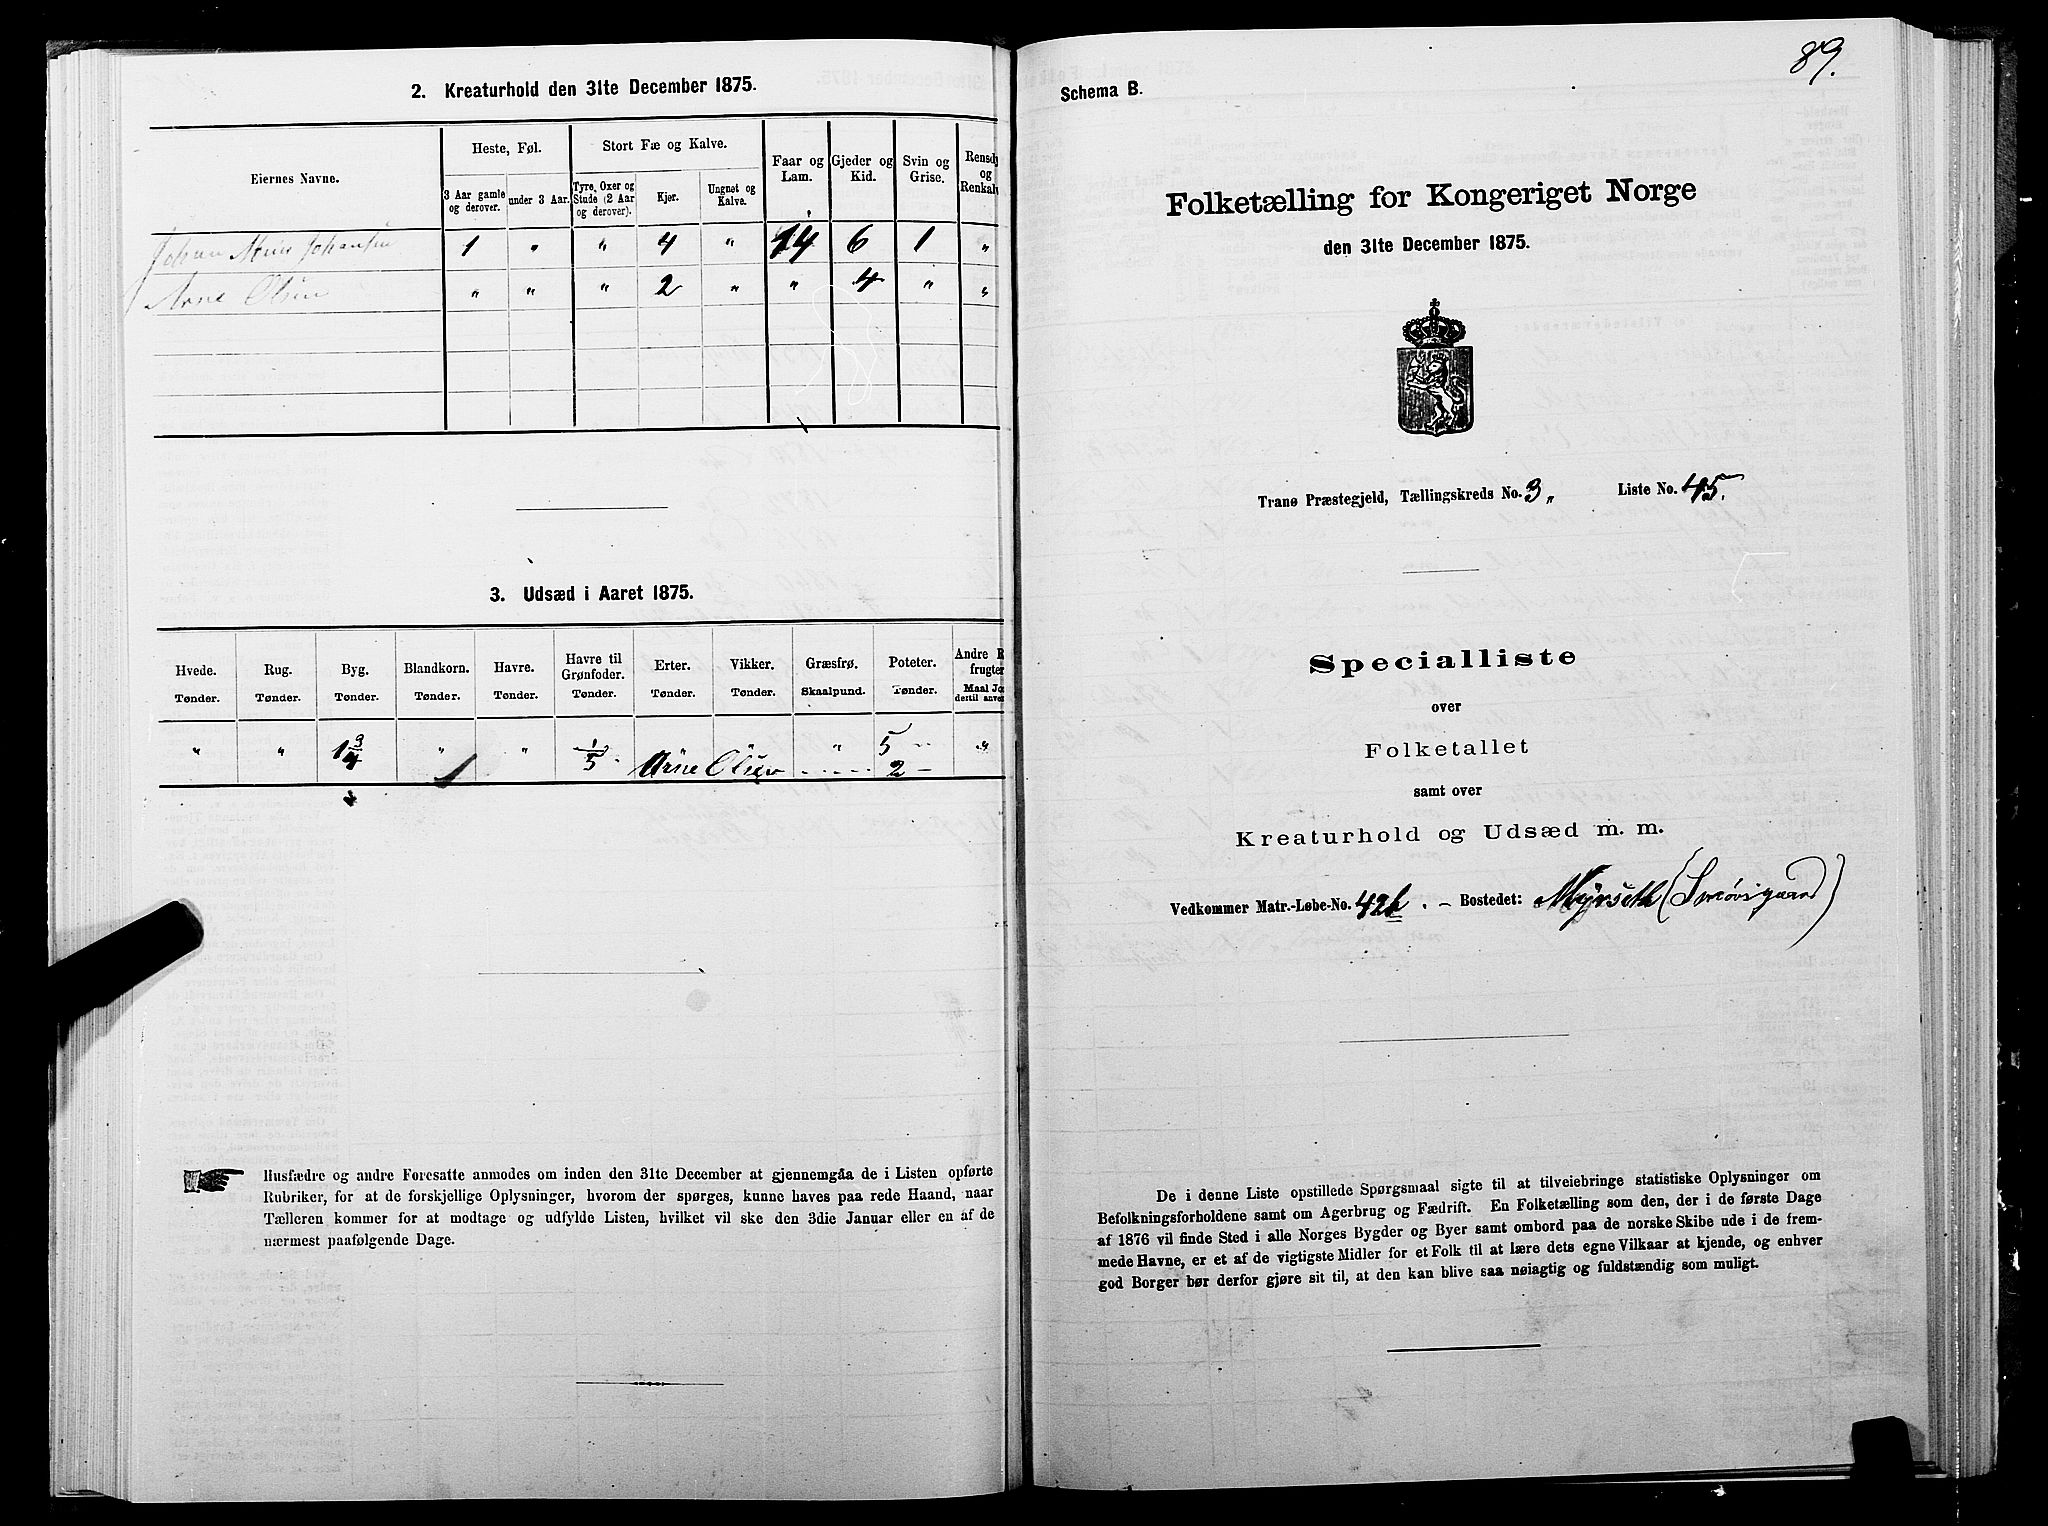 2. Kreaturhold den 31te December 1875.
Eiernes Navne.
Heste, Føl.
Stort Fæ og Kalve.
Faar og Lam.
Gjeder og Kid.
Svin og Grise.
Rensdy
og
Renkalv
3 Aar gamle og derover.
under 3 Aar.
Tyre, Oxer og Stude (2 Aar og derover).
Kjør.
Ungnøt og Kalve.
Johan Johansen 1 " " 4 " 14 6 1 "
Arne Olsen " " " 2 " " 4 " "
3. Udsæd i Aaret 1875.
Hvede. Rug. Byg. Blandkorn. Havre. Havre til Grønfoder. Erter. Vikker. Græsfrø. Poteter. Andre R
frugter
Tønder. Tønder. Tønder. Tønder. Tønder. Tønder. Tønder. Tønder. Skaalpund. Tønder. Maal Jo
dertil anven
" " 1 3/4 " " 1/5 " 5 "
1 Arne Olsen 2
Husfædre og andre Foresatte anmodes om inden den 31te December at gjennemgåa de i Listen opførte
Rubriker, for at de forskjellige Oplysninger, hvorom der spørges, kunne haves paa rede Haand, naar
Tælleren kommer for at modtage og udfylde Listen, hvilket vil ske den 3die Januar eller en af de
nærmest paafølgende Dage.
89.
Schema B.
Folketælling for Kongeriget Norge
den 31te December 1875.
Tranø Præstegjeld, Tællingskreds No. 3, Liste No. 45.
Specialliste
over
Folketallet
samt over
Kreaturhold og Udsæd m. m.
Vedkommer Matr.-Løbe-No. 42b. - Bostedet: Myrseth (Smøvsgaard)
De i denne Liste opstillede Spørgsmaal sigte til at tilveiebringe statistiske Oplysninger om
Befolkningsforholdene samt om Agerbrug og Fædrift. En Folketælling som den, der i de første Dage
af 1876 vil finde Sted i alle Norges Bygder og Byer samt ombord paa de norske Skibe ude i de frem-
mede Havne, er et af de vigtigste Midler for et Folk til at lære dets egne Vilkaar at kjende, og enhver
god Borger bør derfor gjøre sit til, at den kan blive saa nøiagtig og fuldstændig som muligt.